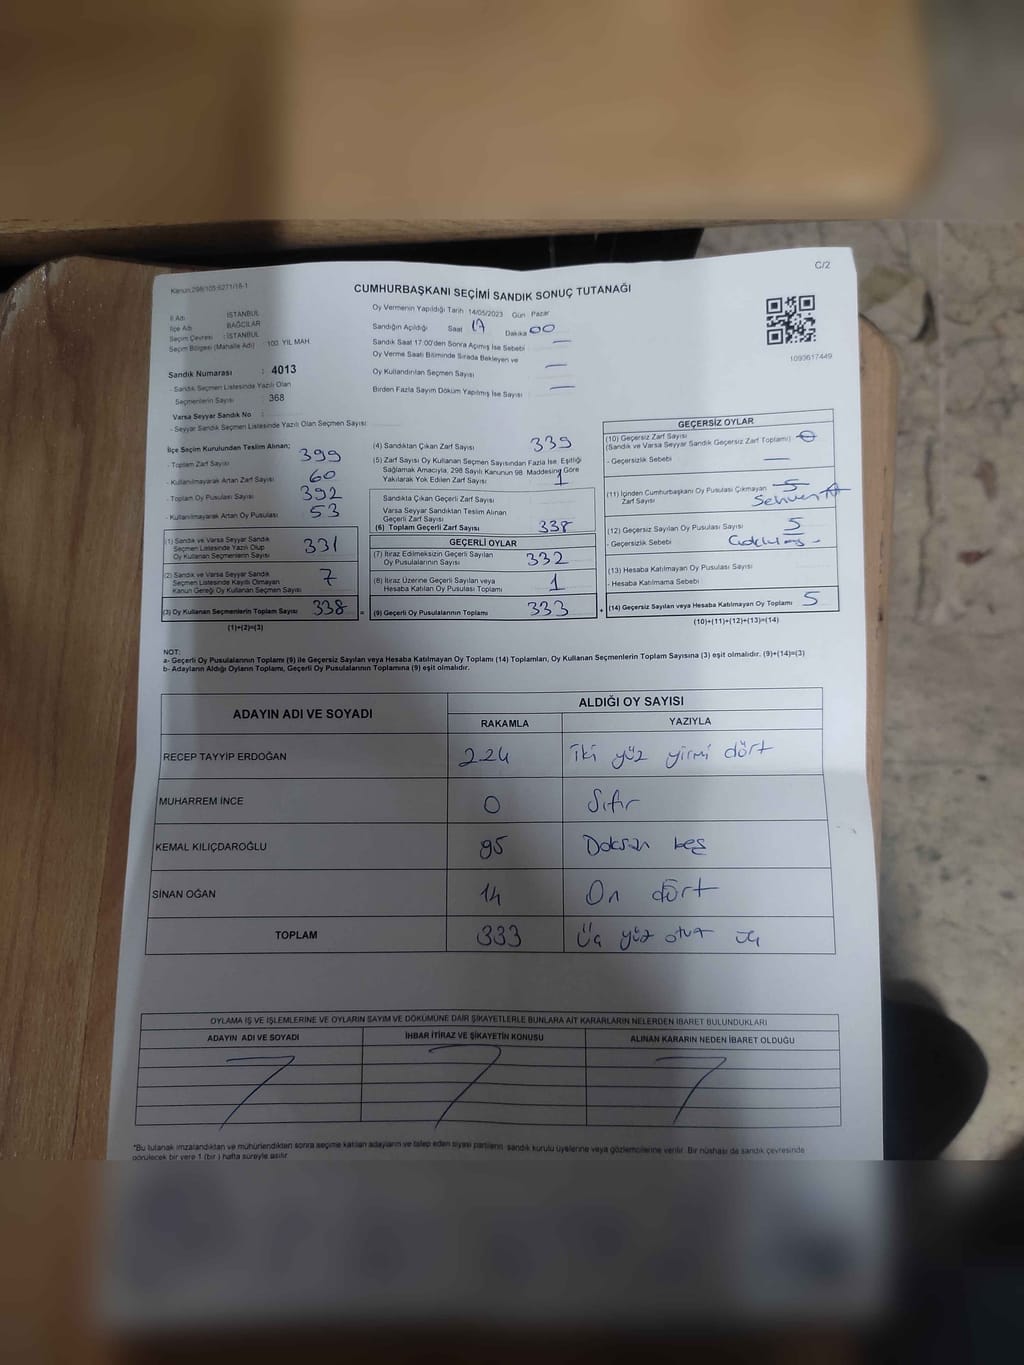 C/2
Kanun:298/105:6271/18-1
CUMHURBAŞKANI SEÇİMİ SANDIK SONUÇ TUTANAĞI
İl Adı : İSTANBUL
İlçe Adı : BAĞCILAR
Seçim Çevresi : İSTANBUL
Seçim Bölgesi (Mahalle Adı) : 100. YIL MAH.
Sandık Numarası : 4013
- Sandık Seçmen Listesinde Yazılı Olan
Seçmenlerin Sayısı : 368
Varsa Seyyar Sandık No :
- Seyyar Sandık Seçmen Listesinde Yazılı Olan Seçmen Sayısı
Oy Vermenin Yapıldığı Tarih 14/05/2023 Gün Pazar
Sandığın Açıldığı Saat 17 Dakika 00
Sandık Saat 17.00'den Sonra Açmış İse Sebebi —
Oy Verme Saati Bitiminde Sırada Bekleyen ve
Oy Kullandırılan Seçmen Sayısı —
Birden Fazla Sayım Döküm Yapılmış İse Sayısı —
1093617449
İlçe Seçim Kurulundan Teslim Alınan;
- Toplam Zarf Sayısı 399
- Kullanılmayarak Artan Zarf Sayısı 60
- Toplam Oy Pusulası Sayısı 392
- Kullanılmayarak Artan Oy Pusulası 53
(1) Sandık ve Varsa Seyyar Sandık
Seçmen Listesinde Yazılı Olup
Oy Kullanan Seçmenlerin Sayısı 331
(2) Sandık ve Varsa Seyyar Sandık
Seçmen Listesinde Kayıtlı Olmayan
Kanun Gereği Oy Kullanan Seçmen Sayısı 7
(3) Oy Kullanan Seçmenlerin Toplam Sayısı 338 =
(1)+(2)=(3)
(4) Sandıktan Çıkan Zarf Sayısı 339
(5) Zarf Sayısı Oy Kullanan Seçmen Sayısından Fazla İse, Eşitliği
Sağlamak Amacıyla, 298 Sayılı Kanunun 98. Maddesine Göre
Yakılarak Yok Edilen Zarf Sayısı 1
Sandıkta Çıkan Geçerli Zarf Sayısı
Varsa Seyyar Sandıktan Teslim Alınan
Geçerli Zarf Sayısı
(6) Toplam Geçerli Zarf Sayısı 338
GEÇERLİ OYLAR
(7) İtiraz Edilmeksizin Geçerli Sayılan
Oy Pusulalarının Sayısı 332
(8) İtiraz Üzerine Geçerli Sayılan veya
Hesaba Katılan Oy Pusulası Toplamı 1
(9) Geçerli Oy Pusulalarının Toplamı 333 +
GEÇERSİZ OYLAR
(10) Geçersiz Zarf Sayısı
(Sandık ve Varsa Seyyar Sandık Geçersiz Zarf Toplamı) 0
- Geçersizlik Sebebi —
(11) İçinden Cumhurbaşkanı Oy Pusulası Çıkmayan 5
Zarf Sayısı
(12) Geçersiz Sayılan Oy Pusulası Sayısı 5
- Geçersizlik Sebebi
(13) Hesaba Katılmayan Oy Pusulası Sayısı
- Hesaba Katılmama Sebebi
(14) Geçersiz Sayılan veya Hesaba Katılmayan Oy Toplamı 5
(10)+(11)+(12)+(13)=(14)
NOT:
a- Geçerli Oy Pusulalarının Toplamı (9) ile Geçersiz Sayılan veya Hesaba Katılmayan Oy Toplamı (14) Toplamları, Oy Kullanan Seçmenlerin Toplam Sayısına (3) eşit olmalıdır. (9)+(14)=(3)
b- Adayların Aldığı Oyların Toplamı, Geçerli Oy Pusulalarının Toplamına (9) eşit olmalıdır.
ADAYIN ADI VE SOYADI
ALDIĞI OY SAYISI
RAKAMLA YAZIYLA
RECEP TAYYİP ERDOĞAN 224 iki yüz yirmi dört
MUHARREM İNCE 0 Sıfır
KEMAL KILIÇDAROĞLU 95 Doksan beş
SİNAN OĞAN 14 On dört
TOPLAM 333 Üç yüz otuz üç
OYLAMA İŞ VE İŞLEMLERİNE VE OYLARIN SAYIM VE DÖKÜMÜNE DAİR ŞİKAYETLERLE BUNLARA AİT KARARLARIN NELERDEN İBARET BULUNDUKLARI
ADAYIN ADI VE SOYADI İHBAR İTİRAZ VE ŞİKAYETİN KONUSU ALINAN KARARIN NEDEN İBARET OLDUĞU
*Bu tutanak imzalandıktan ve mühürlendikten sonra seçime katılan adayların ve talep eden siyasi partilerin sandık kurulu üyelerine veya gözlemcilerine verilir. Bir nüshası da sandık çevresinde
görülecek bir yere 1 (bir ) hafta süreyle asılır.